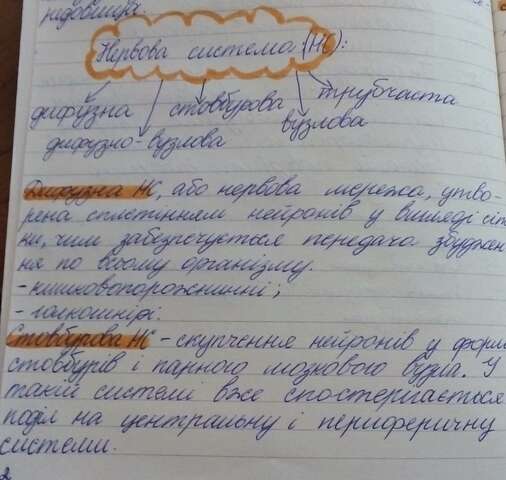 Нервова система (НС):
дифузна стовбурова трубчаста
дифузно-вузлова вузлова
Дифузна НС, або нервова мережа, утво-
рена сплетінням нейронів у вигляді сіт
ки, чим забезпечується передача збуджен
ня по всьому організму.
- кишковопорожнинні;
- голкошкірі.
Стовбурова НС - скупчення нейронів у форм
стовбурів і парного мозкового вузла. У
такій системі вже спостерігається
поділ на центральну і периферичну
системи.
2